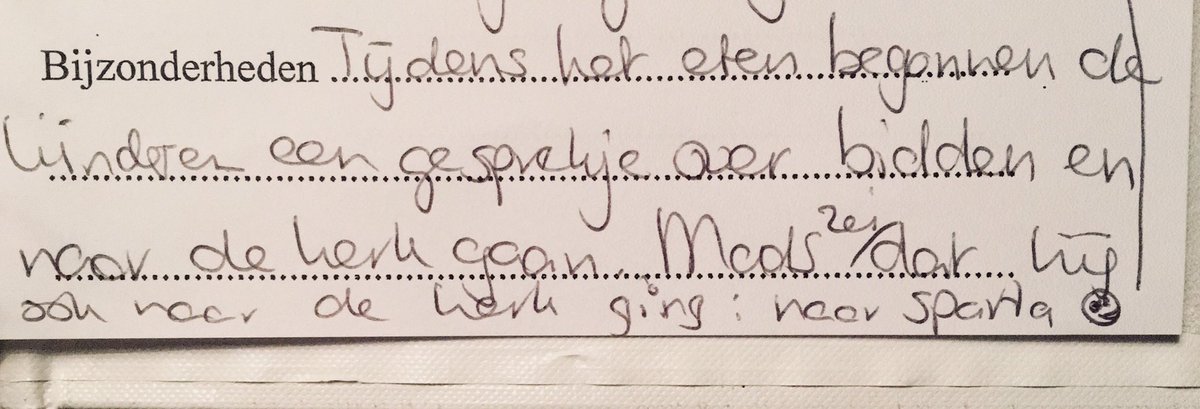 Bijzonderheden Tijdens het eten begonnen de
kinderen een gesprekje over bidden en
naar de kerk gaan. Mads zei dat hij
ook naar de kerk ging: naar sparta